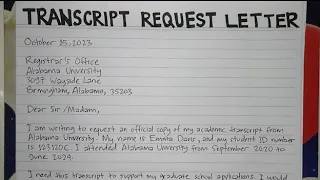 TRANSCRIPT REQUEST LETTER
October 25, 2023
Registrar's Office
Alabama University
3097 Wayside Lane
Birmingham, Alabama, 35203
Dear Sir/Madam,
I am writing to request an official copy of my academic transcript from
Alabama University. My name is Emnita Daric, and my student ID number
is 123120C. I attended Alabama University from September 2020 to
June 2024.
I need this transcript to support my graduate school applications. I would